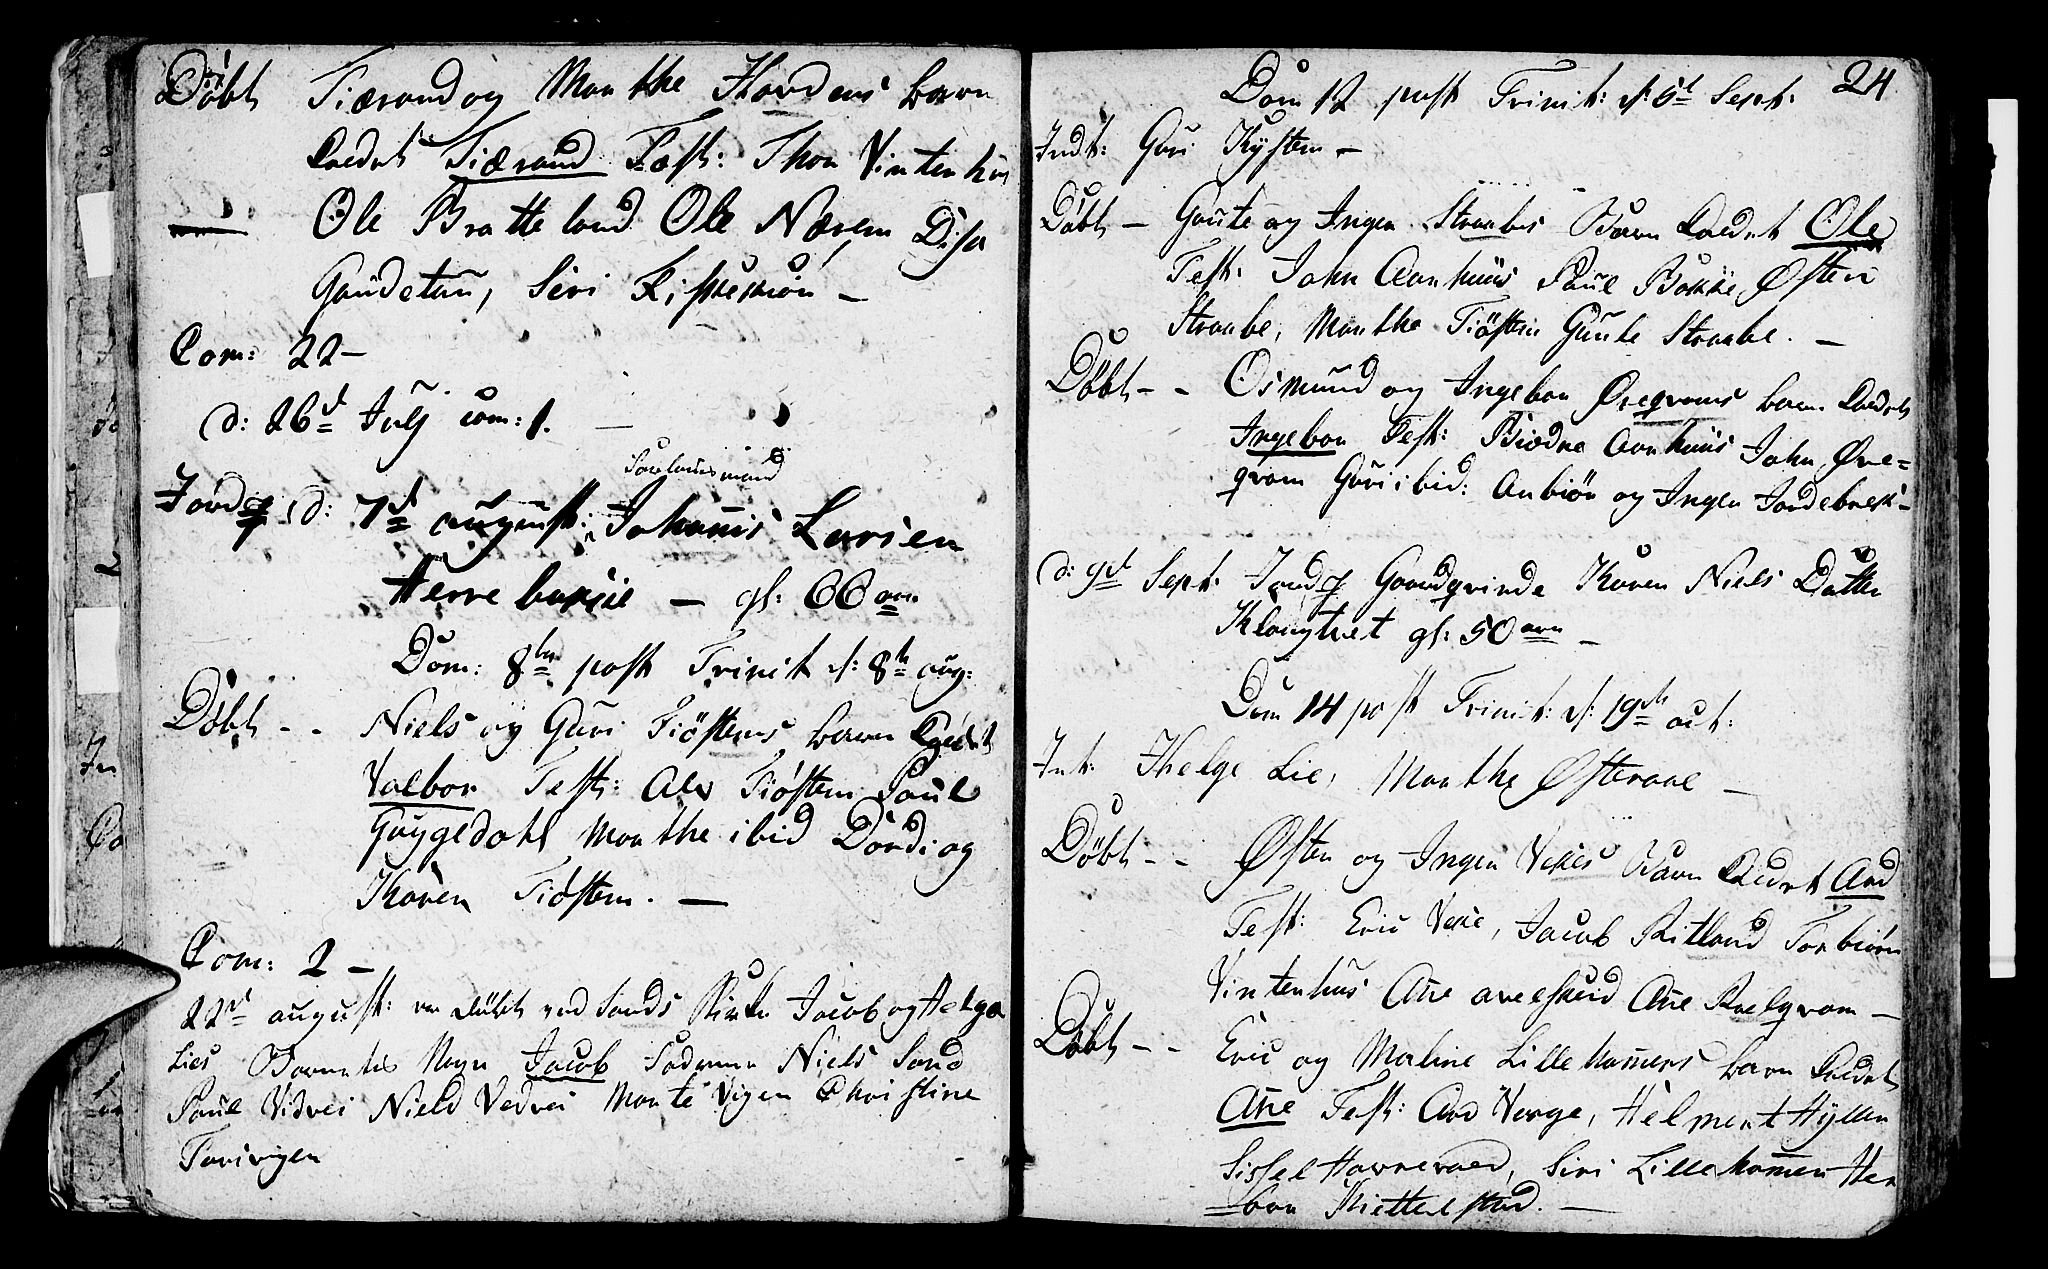 Döbt Tiærand og Marthe Hordens barn
kaldet Tiærand Test: Thor Vintenhus
Ole Bratteland Ole Nærem Disa
Gaudetun, Siri
Com: 22 –
d: 26d Julj com: 1.
Jord d: 7d august: Johannes Larsen
Herre – gl: 66 aar
Dom: 8de post Trinit d: 8de aug:
Döbt – – Niels og Guri Tiöstens barn kaldet
Valbor Test: Alv Tiöstem Paul
Guggedahl Marthe ibid Dordi og
Karen Tiöstem. –
Com: 2 –
22d august: er döbt ved Sands Kirke Jacob og Helga
Lies Barn Navn Jacob Faderne Niels Sand
Paul Vidvei Nield Vedvei Marte Vigen Christine
24
Dom 12 post Trinit: d: 5d Sept:
Indt: Guri Kysten –
Döbt – Gaute og Ingen Straabes Barn kaldet Ole
Test: John Aarhuus Paul Bakke Østen
Straabe, Marthe Tiöstem Gunle Straabe. –
Döbt – – Osmund og Ingebor Øregrams barn kaldet
Ingebor Test: Biædne Aarhuus John Øre=
gram Guri ibid: Anbiör og Ingen
d: 9d Sept: Jord Gaardqvinde Karen Niels Datter
Klungtvet gl: 50 aar –
Dom 14 post Trinit: d: 19de
Int: Helge Lie, Marthe Østeraae –
Döbt – – Østen og Ingen Vekes Barn kaldet And
Test: Eric Veke, Jacob Ritland Torbiörn
Vintenhus Ane Ane Rælgvam –
Döbt – – Eric og Maline Lillehamers barn kaldet
Ane Test: And Verge, Helment Hyllen
Sissel Havrevaed, Siri Lillehamen Her
=bor Kiettelstad. –